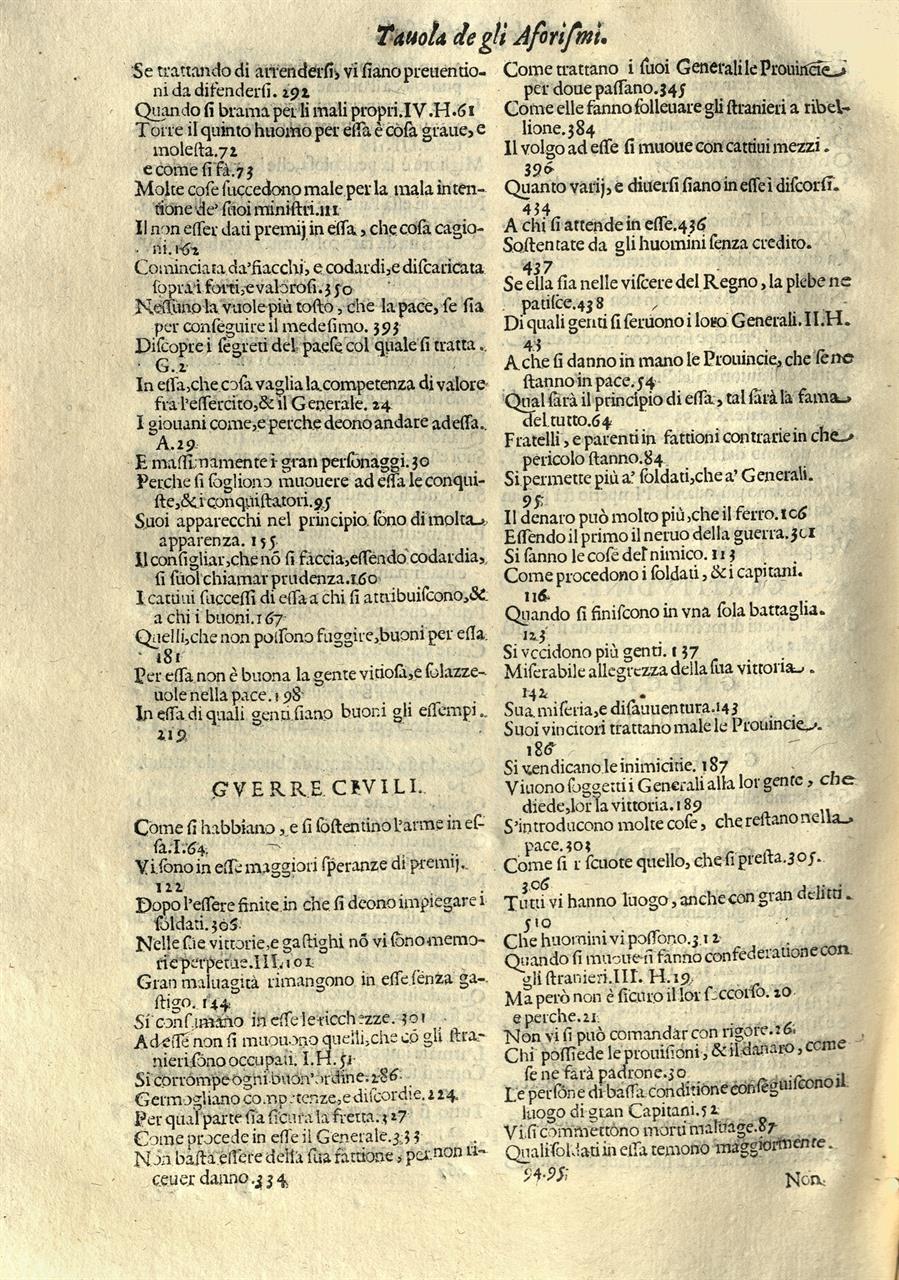 Tauola de gli Aforiſmi.
Se trattando di arrenderſi, vi ſiano preuentio-
ni da difenderſi. 292
Quando ſi brama per li mali propri.IV.H.61
Torre il quinto huomo per eſſa è coſa graue, e
moleſta.72
e come ſi fà.73
Molte coſe ſuccedono male per la mala inten-
tione de' ſuoi miniſtri.111
Il non eſſer dati premij in eſſa, che coſa cagio-
ni.162
Cominciata da' fiacchi, e codardi, e diſcaricata
ſopra i forti, e valoroſi.350
Neſſuno la vuole più toſto, che la pace, ſe ſia
per conſeguire il medeſimo. 393
Diſcopre i ſegreti del paeſe col quale ſi tratta.
G.2
In eſſa, che coſa vaglia la competenza di valore
fra l'eſſercito, & il Generale. 24
I giouani come, e perche deono andare ad eſſa.
A.29
E maſſimamente i gran perſonaggi.30
Perche ſi ſogliono muouere ad eſſa le conqui-
ſte, & i conquiſtatori.95
Suoi apparecchi nel principio ſono di molta
apparenza. 155
Il conſigliar, che nõ ſi faccia, eſſendo codardia,
ſi ſuol chiamar prudenza.160
I cattiui ſucceſſi di eſſa a chi ſi attribuiſcono, &
a chi i buoni.167
Quelli, che non poſſono fuggire, buoni per eſſa
181
Per eſſa non è buona la gente vitioſa, e ſolazze-
uole nella pace.198
In eſſa di quali genti ſiano buoni gli eſſempi.
219
GVERRE CIVILI.
Come ſi habbiano, e ſi ſoſtentino l'arme in eſ-
ſa.I.64
Vi ſono in eſſe maggiori ſperanze di premij.
122
Dopo l'eſſere finite in che ſi deono impiegare i
ſoldati.306
Nelle ſue vittorie, e gaſtighi nõ vi ſono memo-
rie perpetue.III.101
Gran maluagità rimangono in eſſe ſenza ga-
ſtigo. 144
Si conſumano in eſſe le ricchezze. 301
Ad eſſe non ſi muouono quelli, che cõ gli ſtra-
nieri ſono occupati. I.H.51
Si corrompe ogni buon'ordine.286
Germogliano competenze, e diſcordie.224
Per qual parte ſia ſicura la fretta.327
Come procede in eſſe il Generale.333
Non baſta eſſere della ſua fattione, per non ri-
ceuer danno.334
Come trattano i ſuoi Generali le Prouincie
per doue paſſano.345
Come elle fanno ſolleuare gli ſtranieri a ribel-
lione.384
Il volgo ad eſſe ſi muoue con cattiui mezzi.
396
Quanto varij, e diuerſi ſiano in eſſe i diſcorſi.
434
A chi ſi attende in eſſe.436
Soſtentate da gli huomini ſenza credito.
437
Se ella ſia nelle viſcere del Regno, la plebe ne
patiſce.438
Di quali genti ſi ſeruono i loro Generali.II.H.
43
A che ſi danno in mano le Prouincie, che ſe ne
ſtanno in pace.54
Qual ſarà il principio di eſſa, tal ſarà la fama
del tutto.64
Fratelli, e parenti in fattioni contrarie in che
pericolo ſtanno.84
Si permette più a' ſoldati, che a' Generali.
95
Il denaro può molto più, che il ferro.106
Eſſendo il primo il neruo della guerra.301
Si ſanno le coſe del nimico. 113
Come procedono i ſoldati, & i capitani.
116
Quando ſi finiſcono in vna ſola battaglia.
123
Si vccidono più genti. 137
Miſerabile allegrezza della ſua vittoria.
142
Sua miſeria, e diſauuentura.143
Suoi vincitori trattano male le Prouincie.
186
Si vendicano le inimicitie. 187
Viuono ſoggetti i Generali alla lor gente, che
diede, lor la vittoria.189
S'introducono molte coſe, che reſtano nella
pace.303
Come ſi r ſcuote quello, che ſi preſta.305.
306
Tutti vi hanno luogo, anche con gran delitti.
510
Che huomini vi poſſono.312
Quando ſi muoue ſi fanno confederatione con
gli ſtranieri.III. H.19
Ma però non è ſicuro il lor ſoccorſo. 20
e perche.21
Non vi ſi può comandar con rigore.26
Chi poſſiede le prouiſioni, & il danaro, come
ſe ne farà padrone.30
Le perſone di baſſa conditione conſeguiſcono il
luogo di gran Capitani.52
Vi ſi commettono morti maluage.87
Quali ſoldati in eſſa temono maggiormente.
94.95
Non